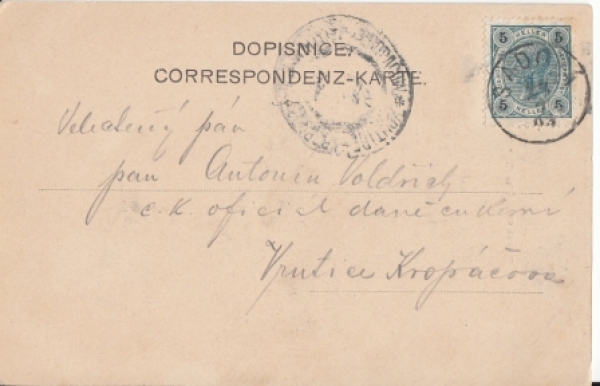 DOPISNICE.
CORRESPONDENZ-KARTE.
5 HELLER 5
5 HELLER 5
Velectěný pán
pan Antonín Voldřich
c. k. oficiál daně cukerní
Vrutice Kropáčova